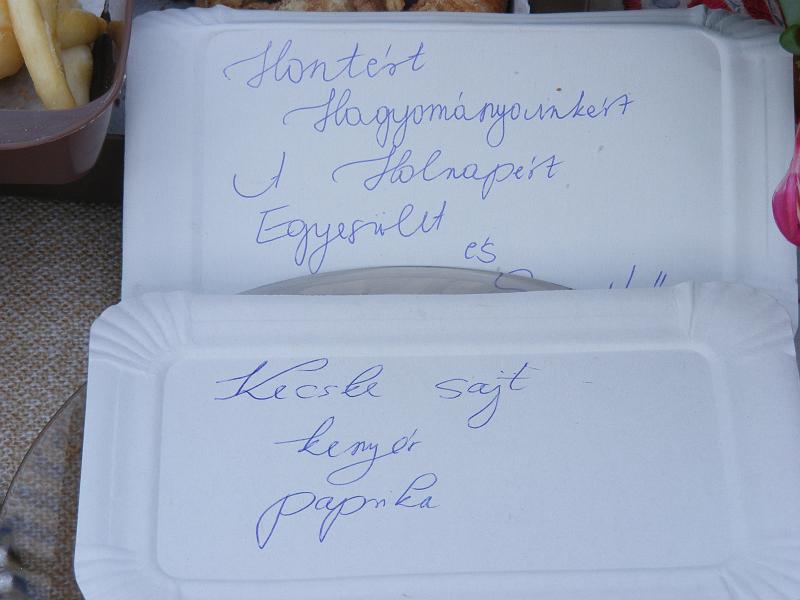 Hontért
Hagyományainkért
A Holnapért
Egyesület
és
Kecske sajt
kenyér
paprika